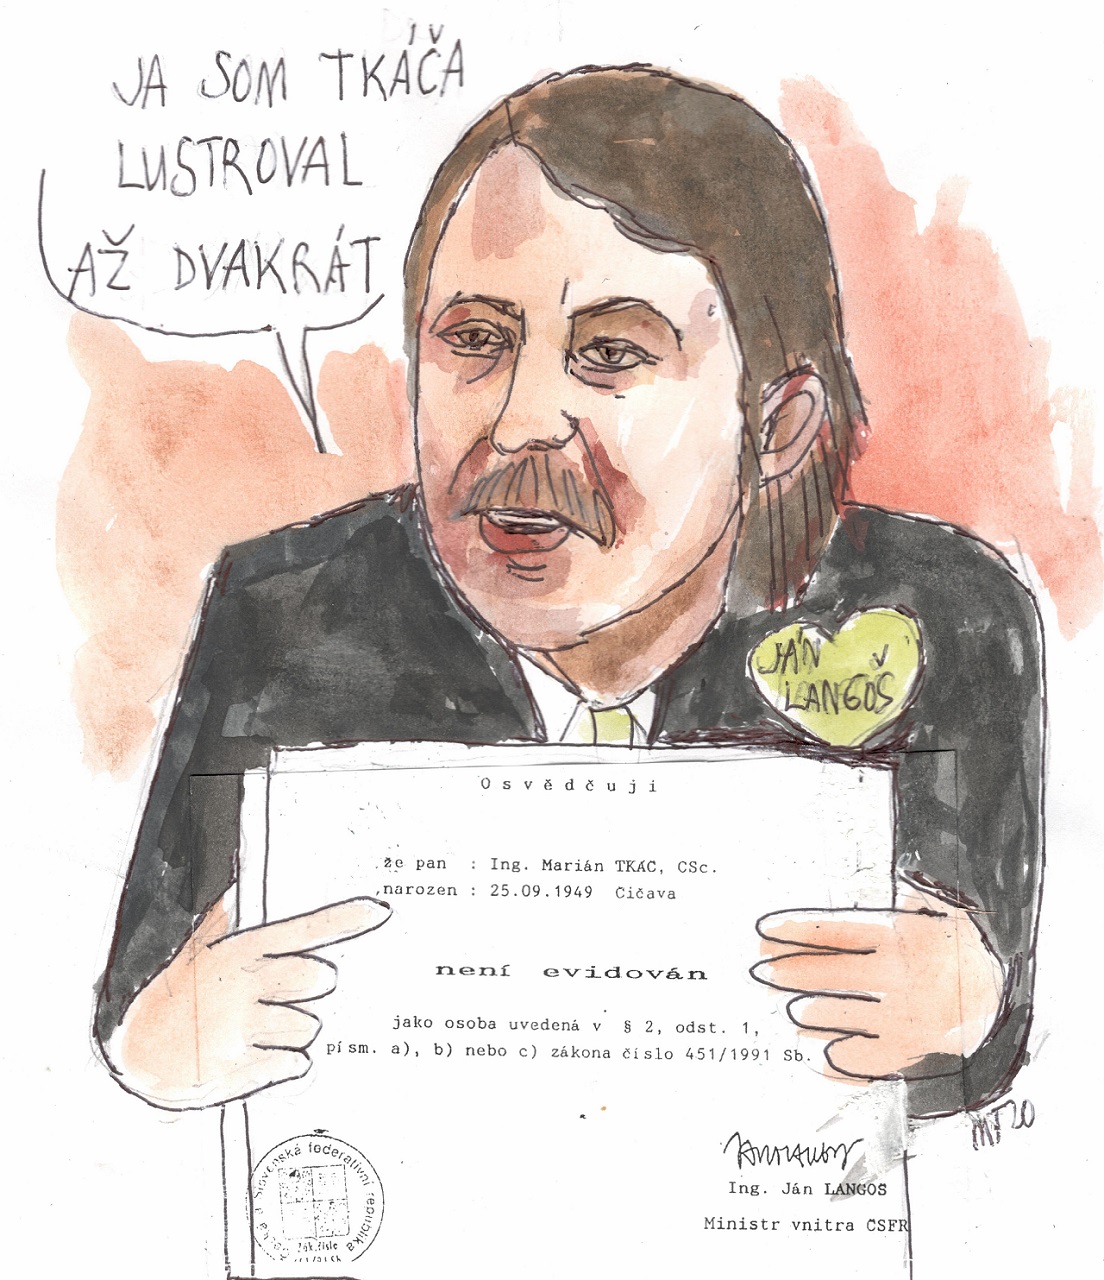 JA SOM TKÁČA
LUSTROVAL
AŽ DVAKRÁT
JÁN
LANGOŠ
Osvědčuji
že pan : Ing. Marián TKÁC, CSc.
narozen : 25.09.1949 Čičava
není evidován
jako osoba uvedená v § 2, odst. 1,
písm. a), b) nebo c) zákona číslo 451/1991 Sb.
Ing. Ján LANGOŠ
Ministr vnitra ČSFR
Slovenská federativní republika
MT20